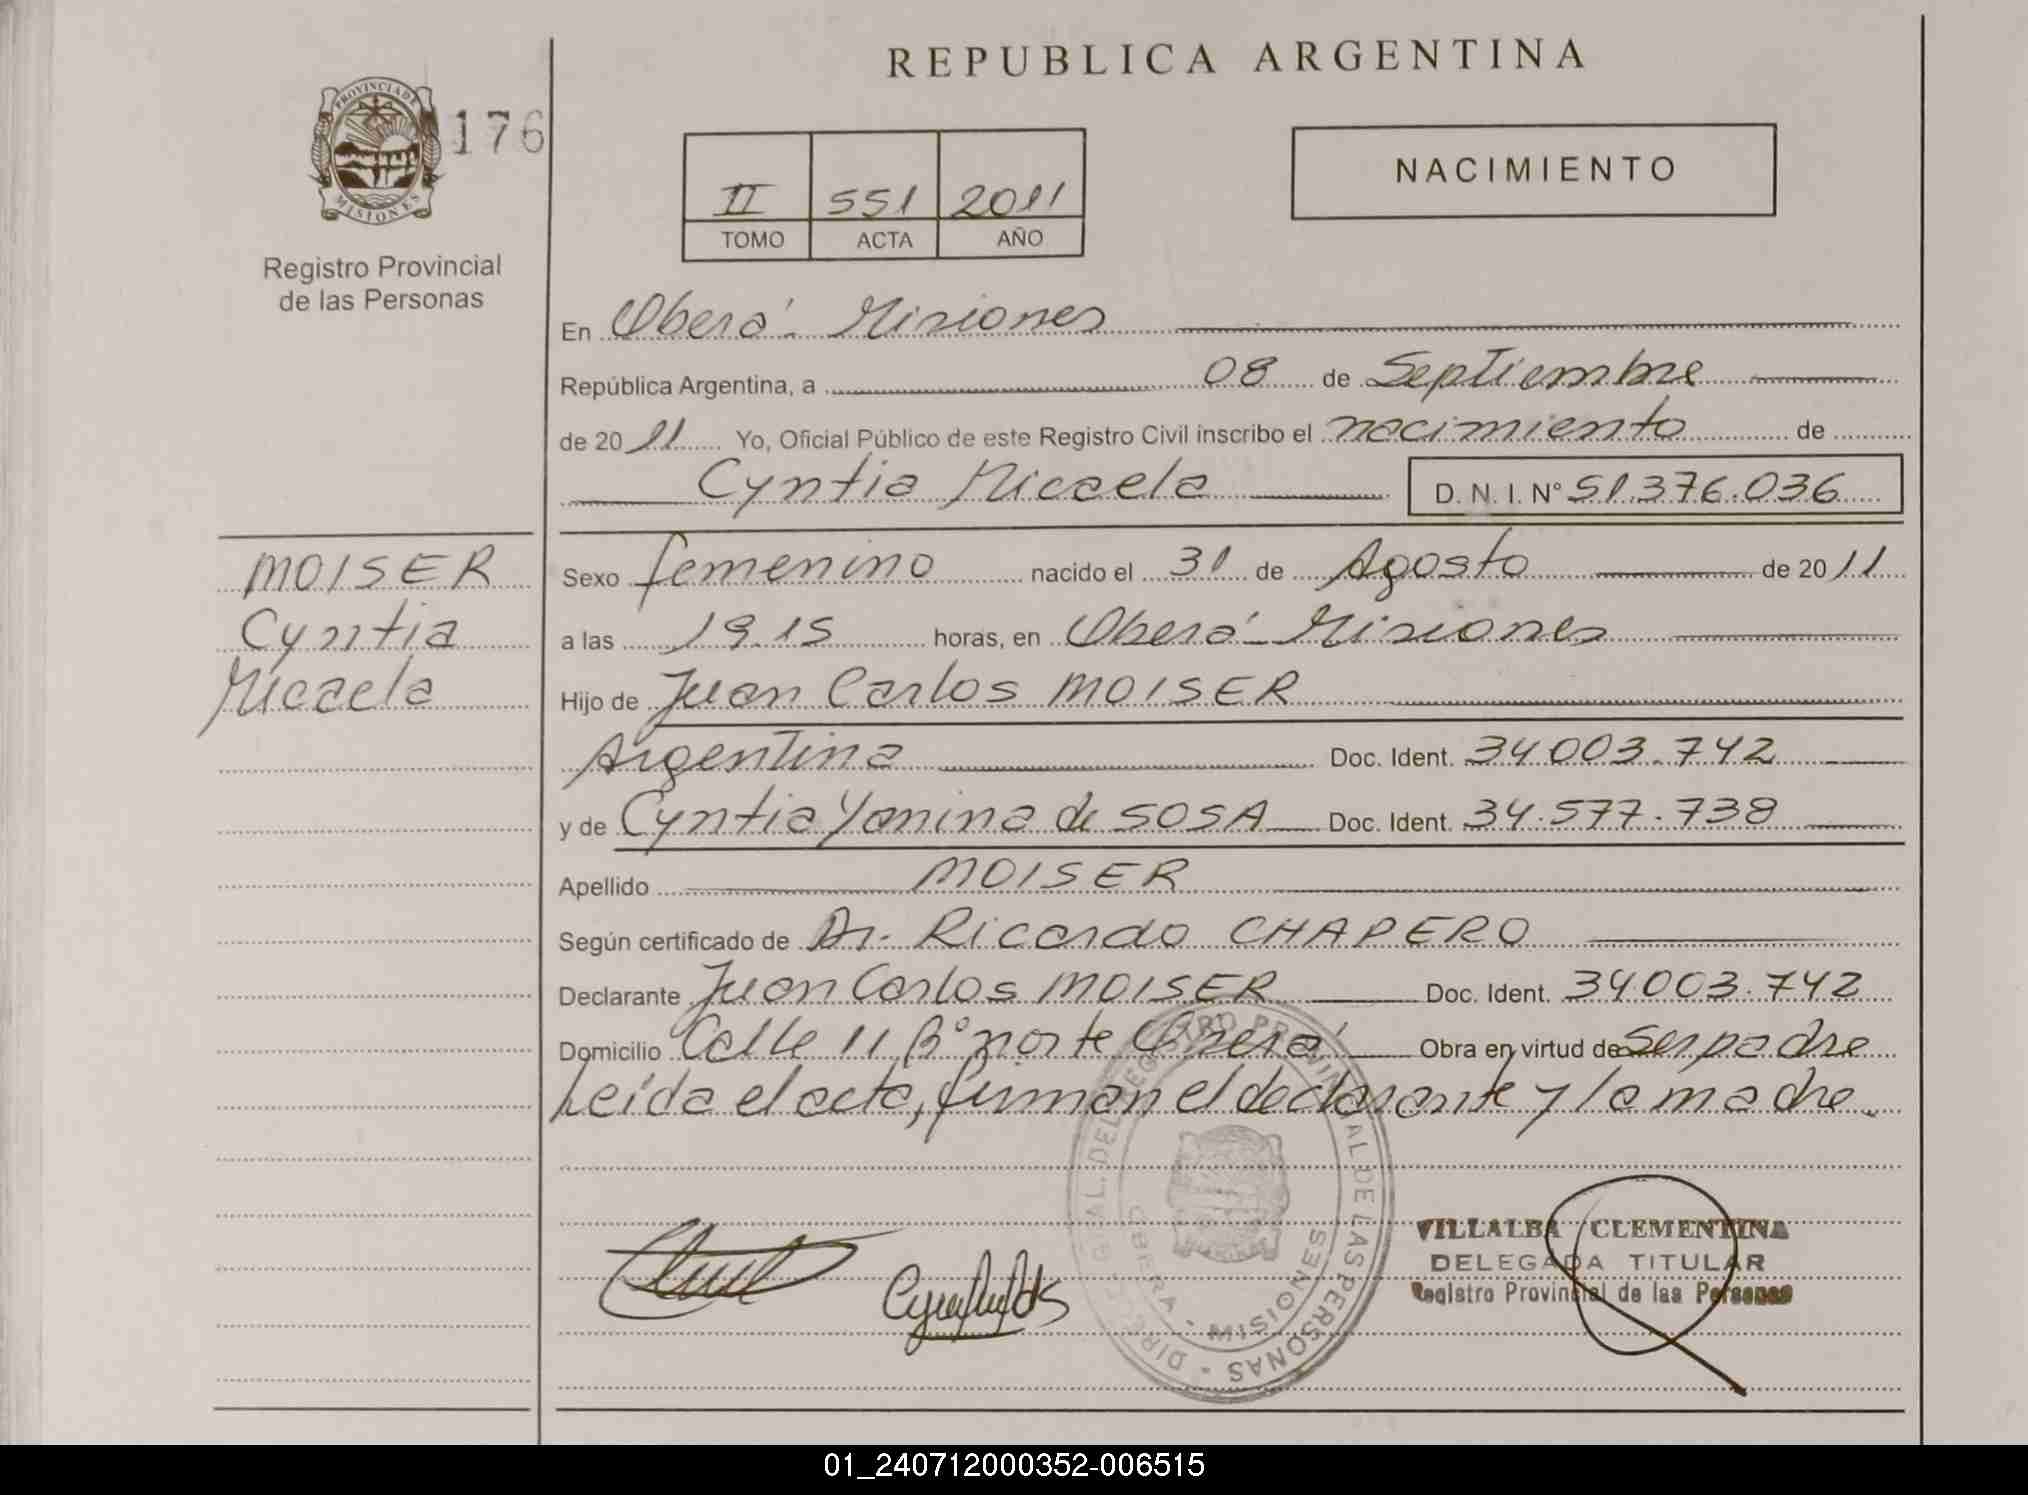 REPUBLICA ARGENTINA
PROVINCIA DE
MISIONES
176
Registro Provincial
de las Personas
II 551 2011
TOMO ACTA AÑO
NACIMIENTO
En Oberá - Misiones
República Argentina, a 08 de Septiembre
de 2011 Yo, Oficial Público de este Registro Civil inscribo el nacimiento de
Cyntia Micaela D. N. I. N° 51.376.036
MOISER
Cyntia
Micaela
Sexo femenino nacido el 31 de Agosto de 2011
a las 19.15 horas, en Oberá - Misiones
Hijo de Juan Carlos MOISER
Argentina Doc. Ident. 34003.742
y de Cyntia Yanina de SOSA Doc. Ident. 34.577.738
Apellido MOISER
Según certificado de Dr. Ricardo CHAPERO
Declarante Juan Carlos MOISER Doc. Ident. 34003.742
Domicilio Calle 11 B° norte Oberá Obra en virtud de Ser padre
Leída el acta, firman el declarante y la madre.
DIRECC. GRAL. DEL REGISTRO PROVINCIAL DE LAS PERSONAS -
OBERA - MISIONES
VILLALBA CLEMENTINA
DELEGADA TITULAR
Registro Provincial de las Personas
01_240712000352-006515